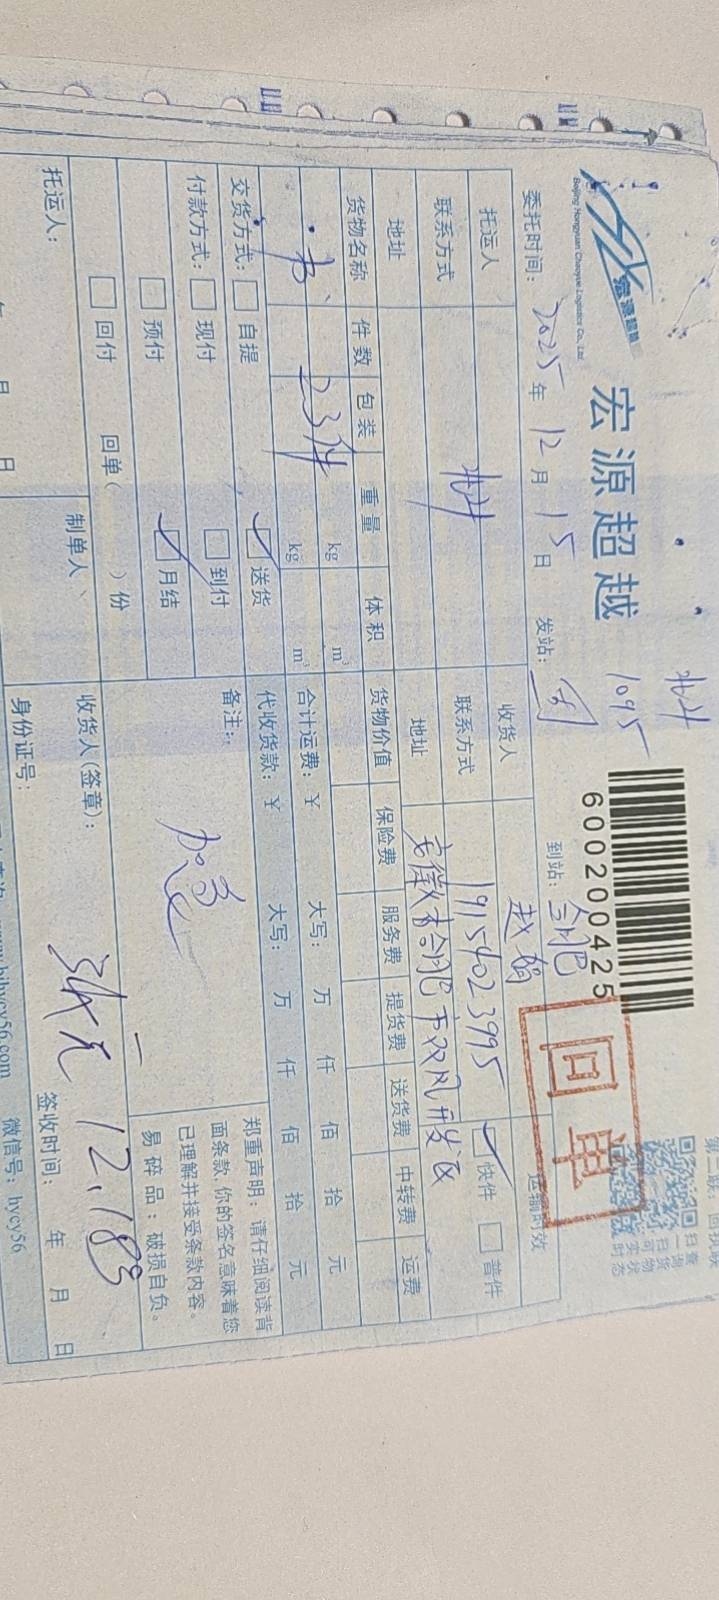 宏源超越
Beijing Hongyuan Chaoyue Logistics Co., Ltd
宏源超越
1095
600200425
回单
委托时间: 2025年12月15日
发站:
到站: 合肥
运输时效
托运人
收货人
联系方式
联系方式 19154023995
快件 普件
地址
地址 安徽省合肥市双凤开发区
货物名称 件数 包装 重量 体积 货物价值 保险费 服务费 提货费 送货费 中转费 运费
书 23件 kg m³
kg m³
合计运费: ¥ 大写: 万 仟 佰 拾 元
代收货款: ¥ 大写: 万 仟 佰 拾 元
交货方式: 自提 送货
付款方式: 现付 到付
预付 月结
回付 回单( )份
备注: 加急
郑重声明: 请仔细阅读背
面条款, 你的签名意味着您
已理解并接受条款内容。
易碎品: 破损自负。
托运人:
制单人
收货人(签章):
12.18号
签收时间: 年 月 日
身份证号:
日
www.bjhycy56.com
微信号: hycy56